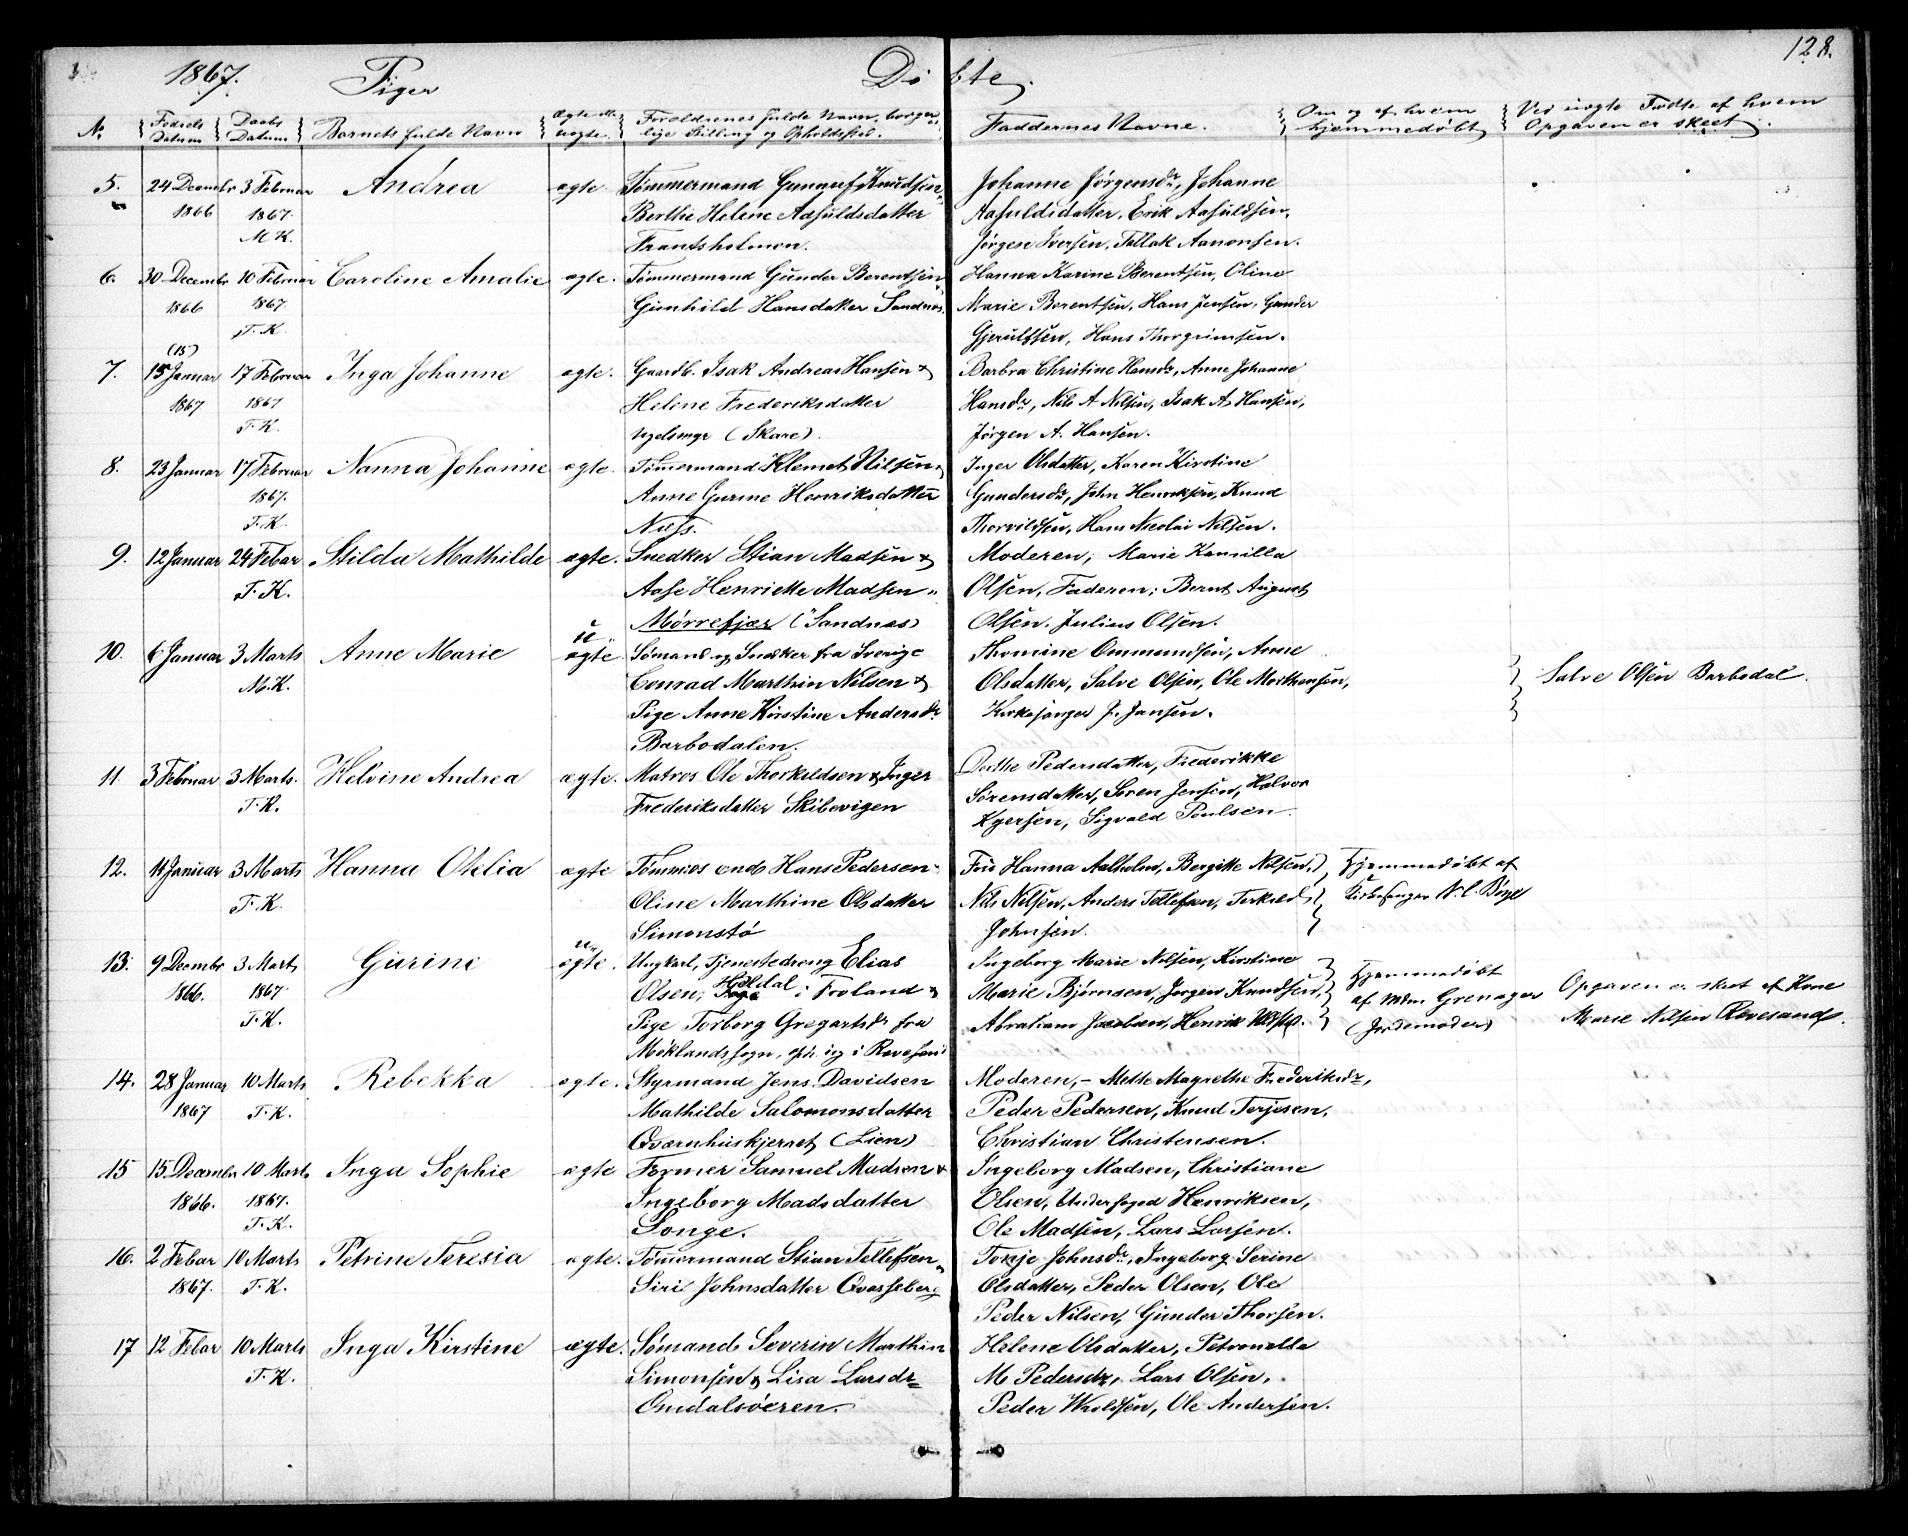 1867. Piger Döbte. 128.
No. Fødsels Datum Daabs Datum Barnets fulde Navn Ægte ell. uægte. Forældrenes fulde Navn, borgerlige Stilling og Opholdssted. Faddernes Navne. Om og af hvem hjemmedøbt Ved uægte Fødte af hvem Opgaven er skeet.
5. 24 Decembr 3 Februar Andrea ægte. Tømmermand Gunnuf Knudsen Johanne Jørgensdr, Johanne
1866 1867. Berthe Helene Aasuldsdatter Aasuldsdatter, Erik Aasuldsen,
M.K. Frantsholmen. Jørgen Iversen, Tellak Aanonsen.
6. 30 Decembr 10 Februar Caroline Amalie ægte. Tømmermand Gunder Berentsen Hanna Karine Berentsen, Oline
1866 1867. Gunhild Hansdatter Sandnæs. Marie Berentsen, Hans Jensen, Gunder
T.K. Gjerulfsen, Hans Thorgrimsen.
(15)
7. 15 Januar 17 Februar Inga Johanne ægte. Gaardb. Isak Andreas Hansen & Barbra Christine Hansdr, Anne Johanne
1867 1867 Helene Frederiksdatter Hansdr, Nils A Nilsen, Isak A. Hansen,
T.K. Ugelsmyr (Skare). Jørgen A. Hansen.
8. 23 Januar 17 Februar Nanna Johanne ægte. Tømermand Klemet Nilsen & Inger Olsdatter, Karen Kirstine
1867. Anne Gurine Henriksdatter Gundersdr, John Henriksen, Knud
T.K. Næss. Thorvildsen, Hans Nicolai Nilsen.
9. 12 Januar 24 Febar Stilda Mathilde ægte. Snedker Stian Madsen & Moderen, Marie Kamilla
T.K. Aase Henriette Madsen Olsen, Faderen, Bernt August
Mørrefjær (Sandnæs) Olsen, Julius Olsen.
10. 6 Januar 3 Marts Anne Marie uægte Sømand og Snedker fra Sverige Thomine Ommundsen, Anne
M.K. Conrad Marthin Nilsen & Olsdatter, Salve Olsen, Ole Morthensen, Salve Olsen Barbodal.
Pige Anne Kirstine Andersdr Kirkesanger J. Jansen.
Barbodalen.
11 3 Februar 3 Marts. Helvine Andrea ægte. Matros Ole Thorkildsen & Inger Dorthe Pedersdatter, Frederikke
T.K. Frederiksdatter Skibevigen Sørensdatter, Søren Jensen, Halvor
Sigvald Poulsen.
12. 11 Januar 3 Marts Hanna Otelia ægte Hans Pedersen Fru Hanna Aalholm, Bergitte Nilsen, Hjemmedøbt af
T.K. Oline Marthine Olsdatter Nils Nilsen, Anders Tellefsen, Terkild Kirkesanger
Simonstø Johnsen.
13. 9 Decembr 3 Marts Gurine uægte. Ungkarl, Tjenestedreng Elias Ingeborg Marie Nilsen, Kirstine Hjemmedøbt
1866. 1867. Olsen, i Froland & Marie Bjørnsen, Jørgen Knudsen, af Mdm. Grenager Opgaven er skeet af Kone
T.K. Pige Torborg Gregartsdr fra Abraham Jacobsen, Henrik (Jordemoder) Marie Nilsen Revesand.
Møklands sogn,
14. 28 Januar 10 Marts Rebekka ægte. Styrmand Jens Davidsen Moderen, – Mette Magrethe Frederiksdr,
1867 T.K. Mathilde Salomonsdatter Peder Pedersen, Knud Terjesen,
Qværnhuskjerret (Lien) Christian Christensen.
15 15 Decembr 10 Marts Inga Sophie ægte Former Samuel Madsen & Ingeborg Madsen, Christiane
1866. 1867. Ingeborg Madsdatter Olsen, Underfoged Henriksen,
T.K. Songe. Ole Madsen, Lars Larsen.
16. 2 Febar 10 Marts Petrine Teresia ægte. Tømermand Stian Tellefsen Torje Johnsdr, Ingeborg Serine
1867. T.K. Siri Johnsdatter Olsdatter, Peder Olsen, Ole
Peder Nilsen, Gunder Thorsen.
17 12 Febar 10 Marts Inga Kirstine ægte. Sømand Severin Marthin Helene Olsdatter, Petronelle
T.K. Simonsen & Lisa Larsdr M. Pedersdr, Lars Olsen,
Omdalsöeren. Peder Wroldsen, Ole Andersen.